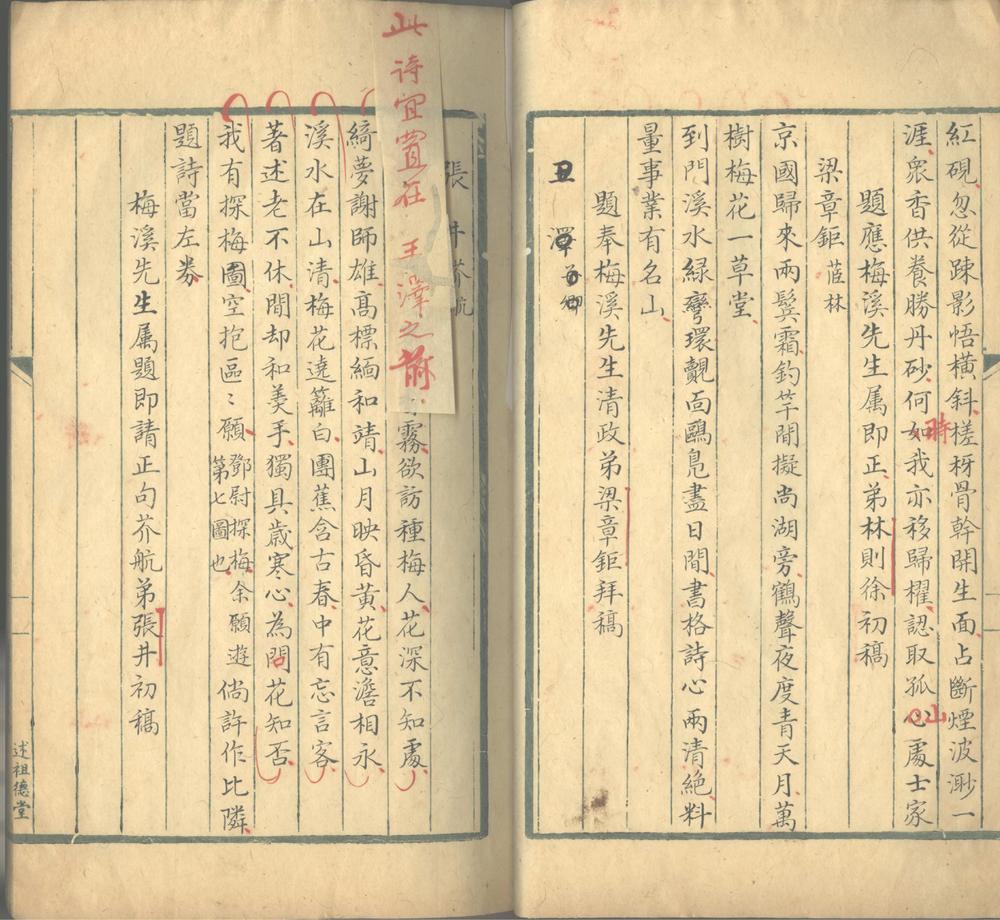 紅硯忽從疎影悟橫斜槎枒骨幹開生面占斷煙波渺一
涯衆香供養勝丹砂何如我亦移歸櫂認取孤心處士家
時
山
題應梅溪先生属即正弟林則徐初稿
梁章鉅 茝林
京國歸來兩鬢霜釣竿閒擬尚湖旁鶴聲夜度青天月萬
樹梅花一草堂
到門溪水綠彎環覿面鷗鳬盡日閒書格詩心兩清絕料
量事業有名山
題奉梅溪先生清政弟梁章鉅拜稿
此詩宜置在 王澤之前
張井芥航
霧欲訪種梅人花深不知處
綺夢謝師雄高標緬和靖山月映昏黃花意澹相永
溪水在山清梅花遶籬白團蕉含古春中有忘言客
著述老不休閒却和羹手獨具歲寒心為問花知否
我有探梅圖空抱區〻願 鄧尉探梅余願遊第七圖也 倘許作比隣
題詩當左券
梅溪先生属題即請正句芥航弟張井初稿
述祖德堂